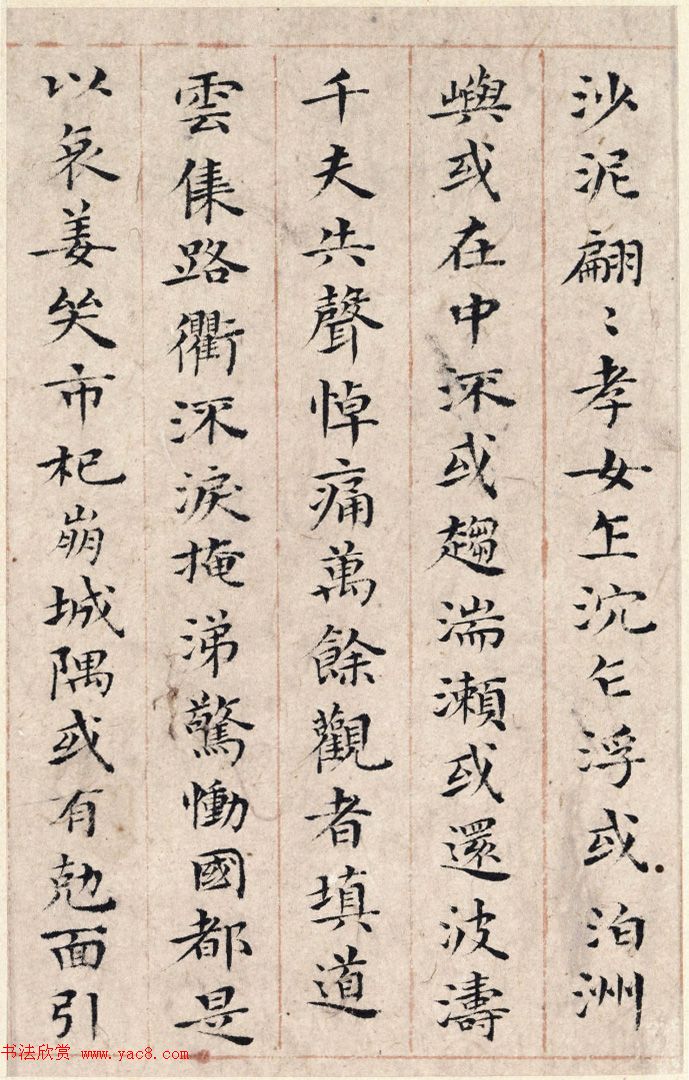 沙泥翩〻孝女乍沉乍浮或泊洲
嶼或在中流或趨湍瀨或還波濤
千夫共聲悼痛萬餘觀者填道
雲集路衢流淚掩涕驚慟國都是
以哀姜哭市杞崩城隅或有勊面引
书法欣赏 www.yac8.com